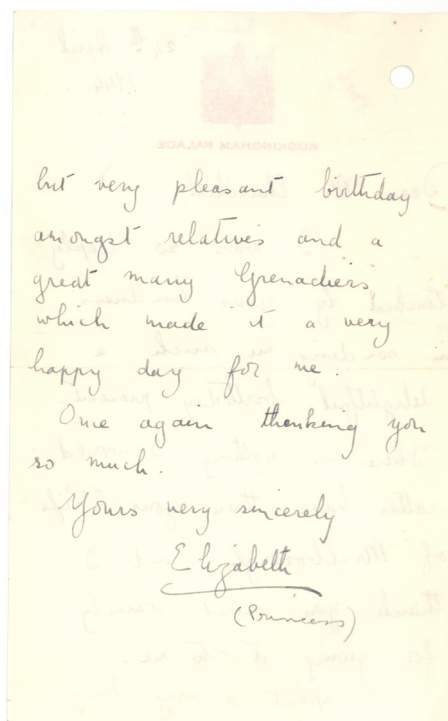 BUCKINGHAM PALACE
but very pleasant birthday
amongst relatives and a
great many Grenadiers,
which made it a very
happy day for me.
Once again thanking you
so much.
Yours very sincerely
Elizabeth
(Princess)